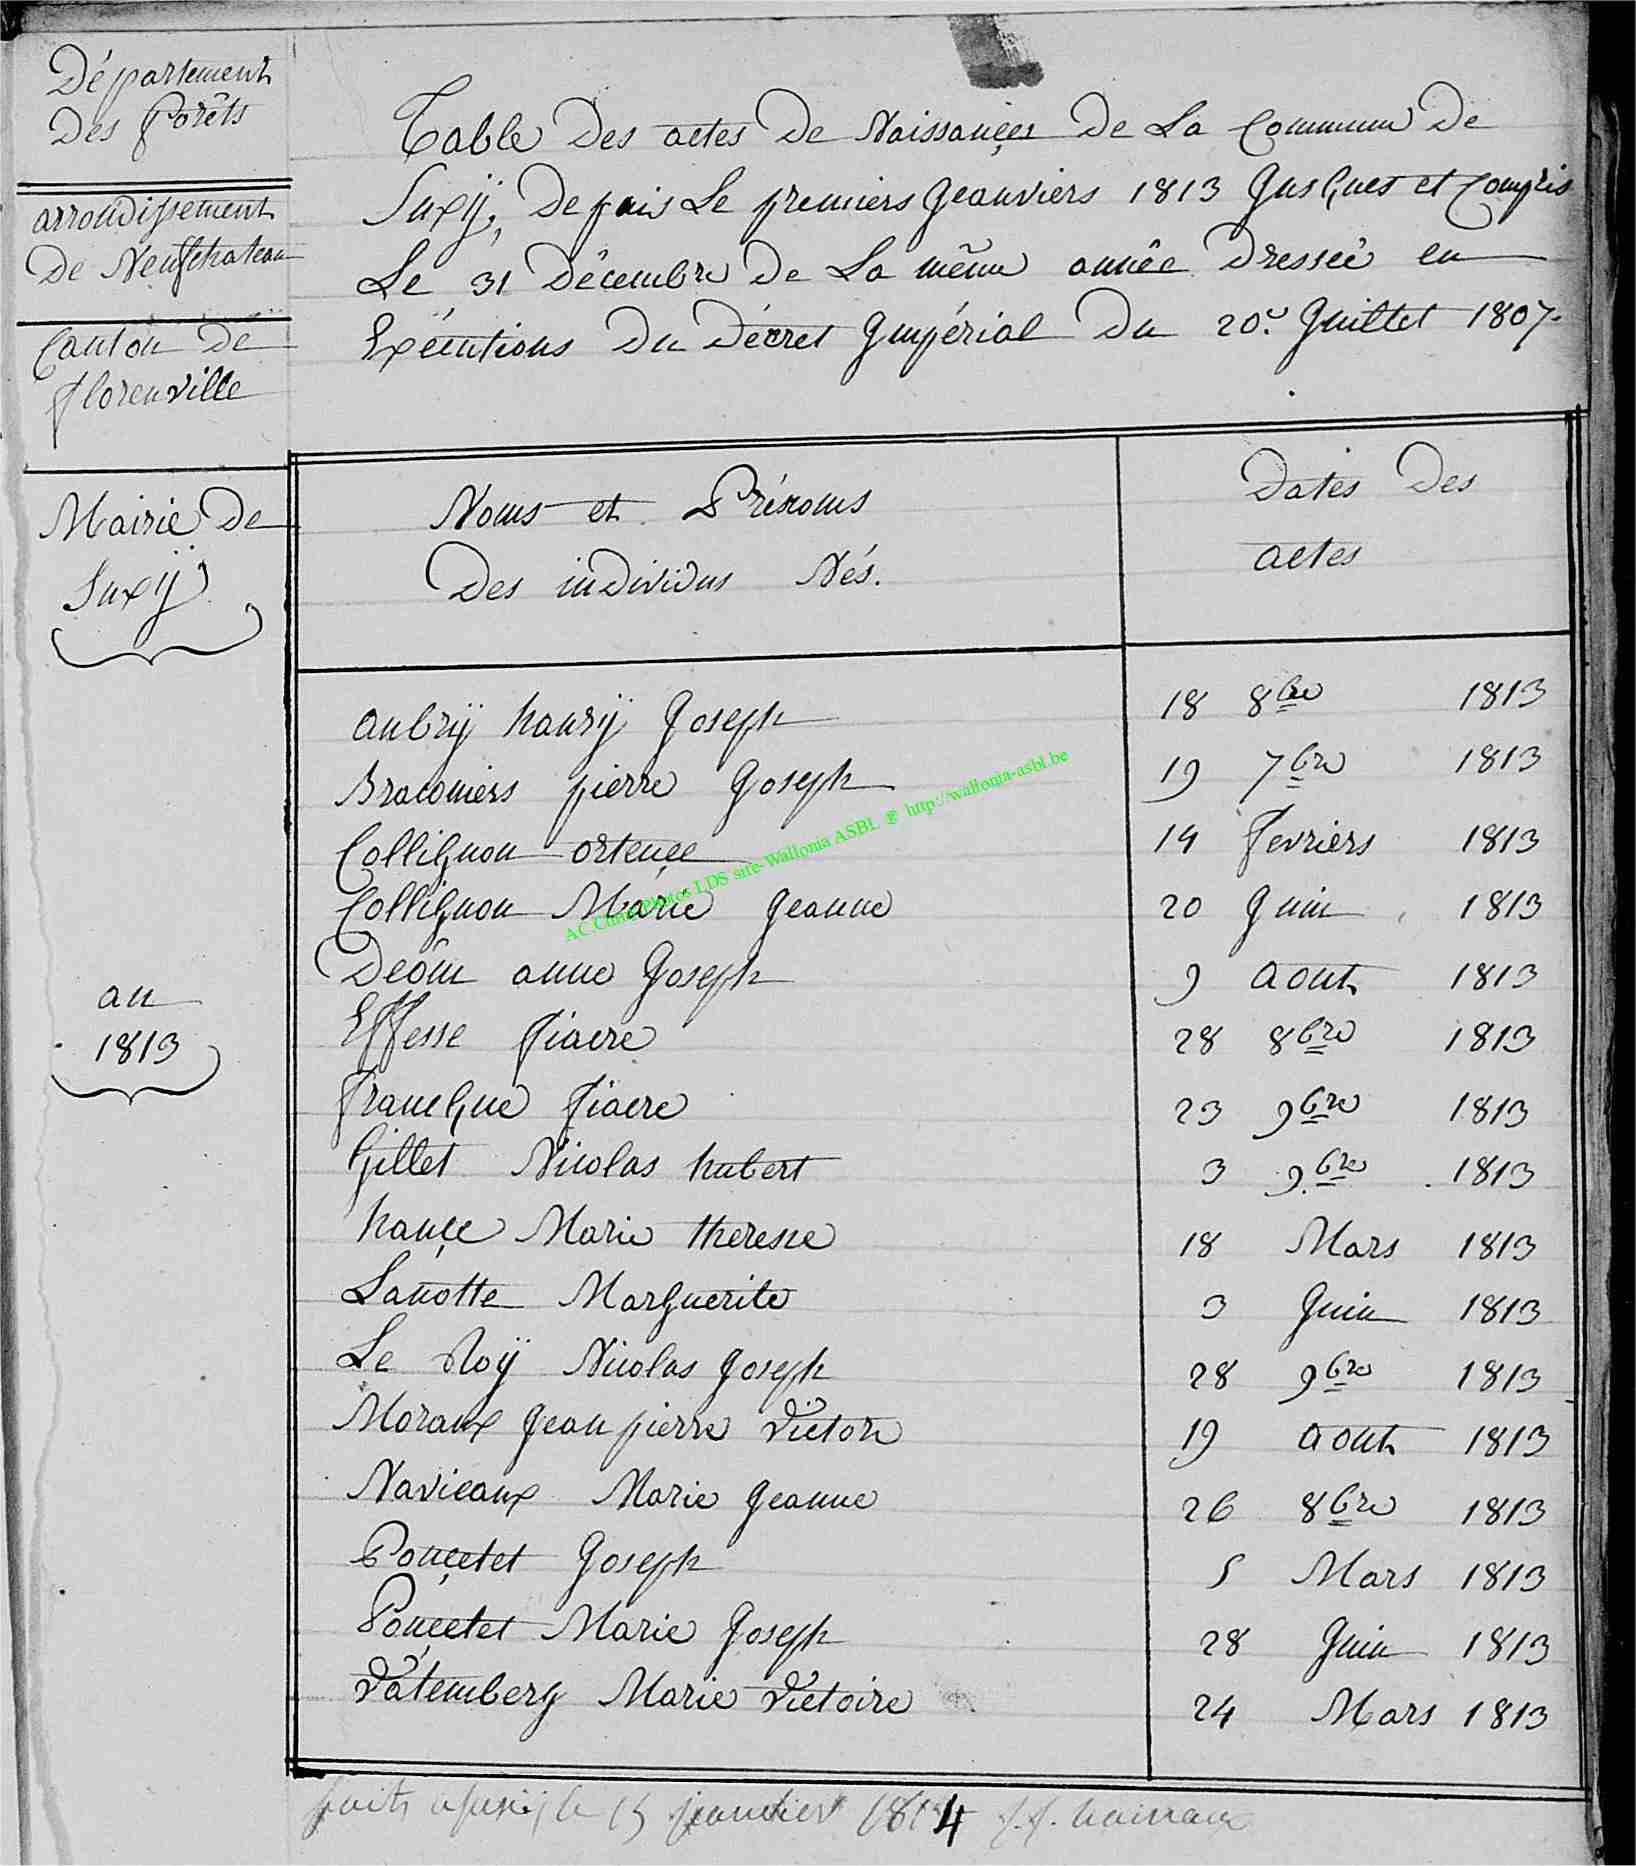 Département
Des forêts
arrondissement
De Neufchateau
Canton De
florenville
Mairie De
Suxÿ
an
1813
Table Des actes De Naissançes De La Commune De
Suxÿ, Depuis Le premiers Jeanviers 1813 Jusques et Compris
Le 31 Décembre De La même année Dressée en
Exécutions Du Décret Impérial Du 20e Juillet 1807.
Noms et Prénoms
Des individus Nés.
Dates Des
actes
aubrÿ hanrÿ Joseph 18 8bre 1813
Braconiers pierre Joseph 19 7bre 1813
Collignon ortençe 14 fevriers 1813
Collignon Marie Jeanne 20 Juin 1813
Deôm anne Joseph 9 aout 1813
Effesse fiacre 28 8bre 1813
francque fiacre 23 9bre 1813
Gillet Nicolas hubert 3 9bre 1813
hançe Marie therese 18 Mars 1813
Lanotte Marguerite 3 Juin 1813
Le Roÿ Nicolas Joseph 28 9bre 1813
Moraux Jean pierre Victor 19 aout 1813
Naviaux Marie Jeanne 26 8bre 1813
Ponçetet Joseph 5 Mars 1813
Ponçetet Marie Joseph 28 Juin 1813
Vatemberg Marie Victoire 24 Mars 1813
AC Chiny Photos LDS site-Wallonia ASBL @ http://wallonia-asbl.be
fait a suxÿ le 15 janvier 1814